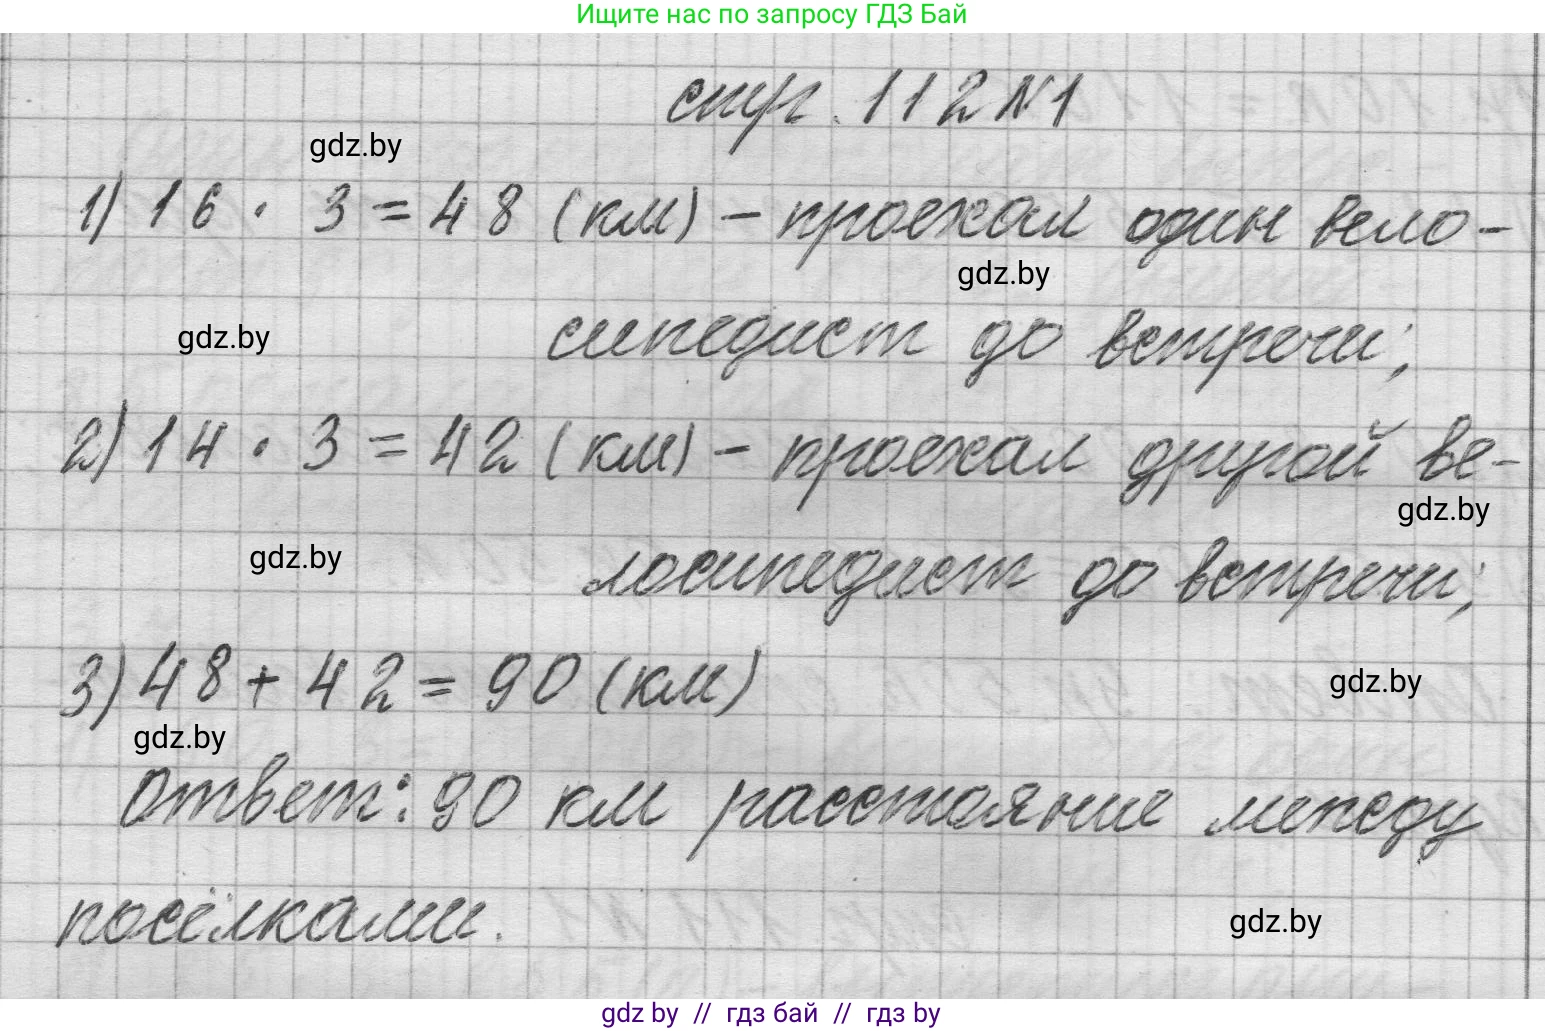 Ищите нас по запросу ГДЗ Бай
стр. 112 №1
gdz.by
1) 16 · 3 = 48 (км) – проехал один вело-
gdz.by
gdz.by
сипедист до встречи;
2) 14 · 3 = 42 (км) – проехал другой ве-
gdz.by
gdz.by
лосипедист до встречи;
3) 48 + 42 = 90 (км)
gdz.by
gdz.by
Ответ: 90 км расстояние между
посёлками.
gdz.by
gdz by // гдз бай // гдз by